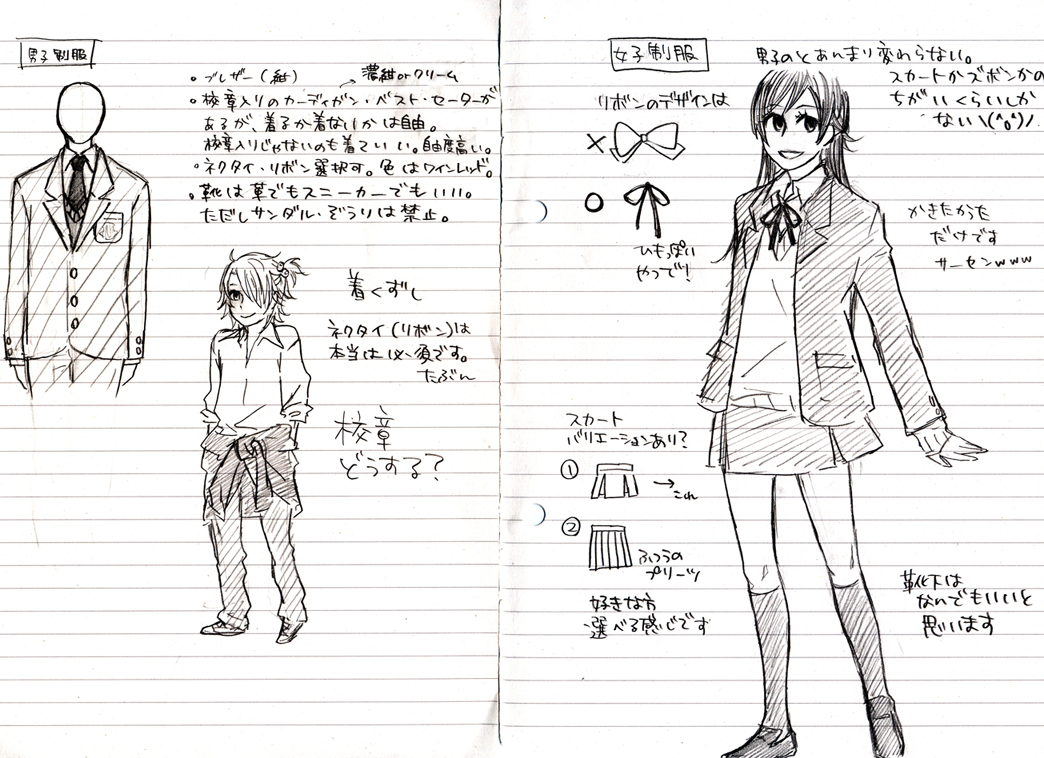 男子制服
・ブレザー(紺)
濃紺orクリーム
・校章入りのカーディガン・ベスト・セーターが
あるが、着るか着ないかは自由。
校章入りじゃないのも着ていい。自由度高い。
・ネクタイ・リボン選択す。色はワインレッド。
・靴は革でもスニーカーでもいい。
ただしサンダル・ぞうりは禁止。
着くずし
ネクタイ(リボン)は
本当は必須です。
たぶん
校章
どうする?
女子制服
男子のとあんまり変わらない。
スカートかズボンかの
ちがいくらいしか
ない\(^o^)/
リボンのデザインは
×
○
ひもっぽい
やつで!
かきたかった
だけです
サーセンwww
スカート
バリエーションあり?
① → これ
② ふつうの
プリーツ
好きな方
選べる感じです
靴下は
なんでもいいと
思います